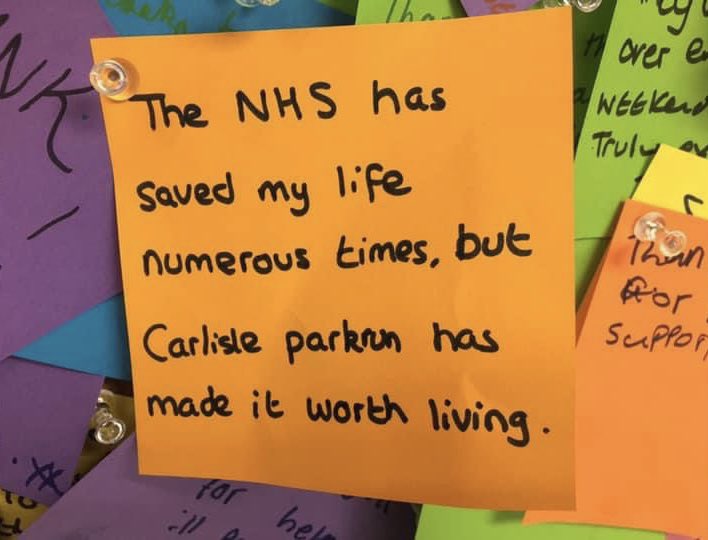 The NHS has
saved my life
numerous times, but
Carlisle parkrun has
made it worth living.
over
WEEKEND
Truly
for
support
for